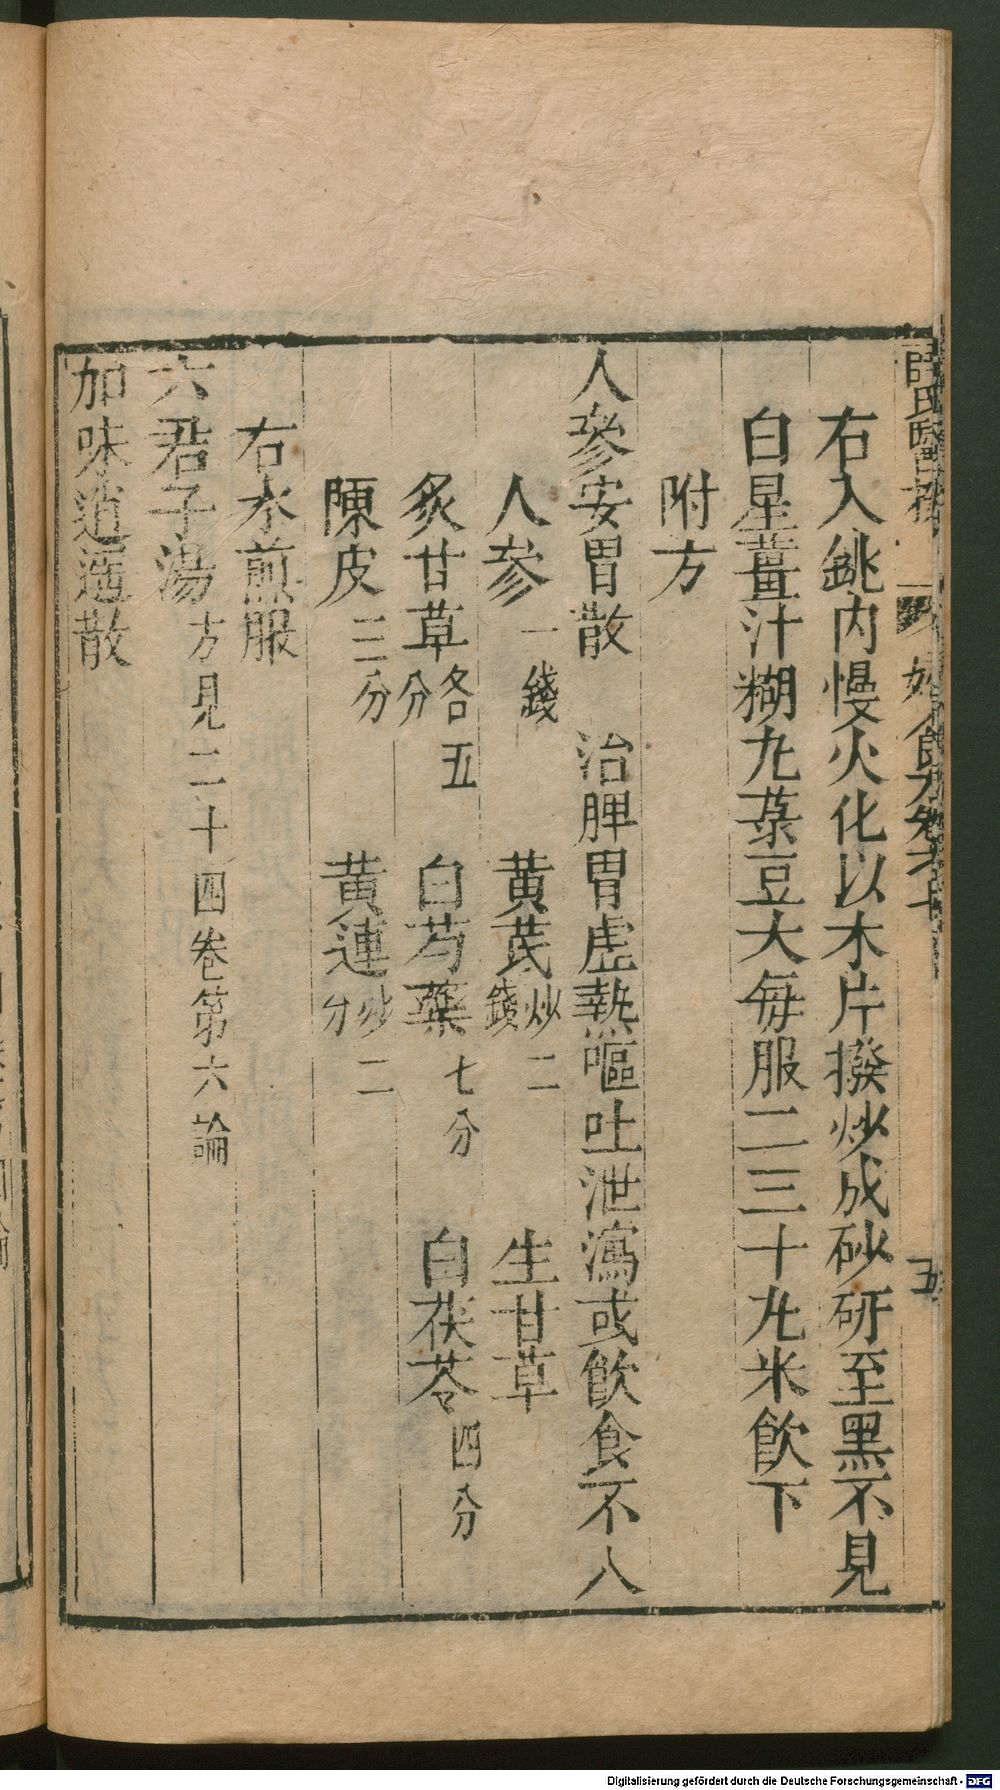 薛氏醫按 婦人良方卷之十二 五
右入銚內慢火化以木片撥炒成砂研至黑不見
白星薑汁糊九菉豆大每服二三十九米飲下
附方
人參安胃散 治脾胃虛熱嘔吐泄瀉或飲食不入
人參一錢 黃芪炒二錢 生甘草
炙甘草各五分 白芍藥七分 白茯苓四分
陳皮三分 黃連炒二分
右水煎服
六君子湯方見二十四卷第六論
加味逍遙散
Digitalisierung gefördert durch die Deutsche Forschungsgemeinschaft - DFG